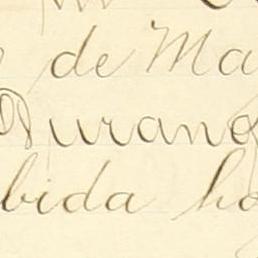 de Ma
Durang
bida ho